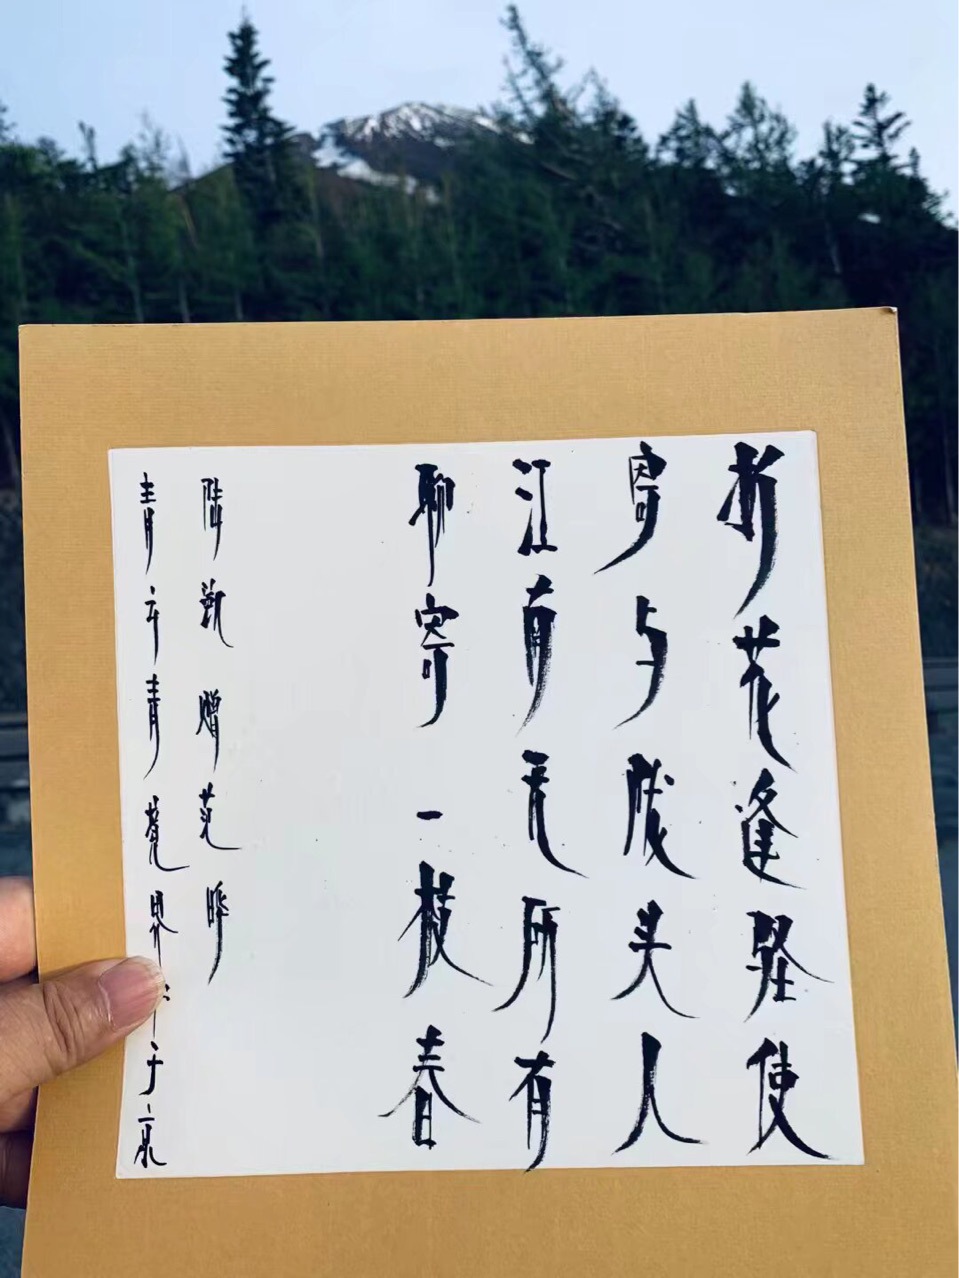 折花逢驿使
寄与陇头人
江南无所有
聊寄一枝春
陆凯赠范晔
青 青 界 于京